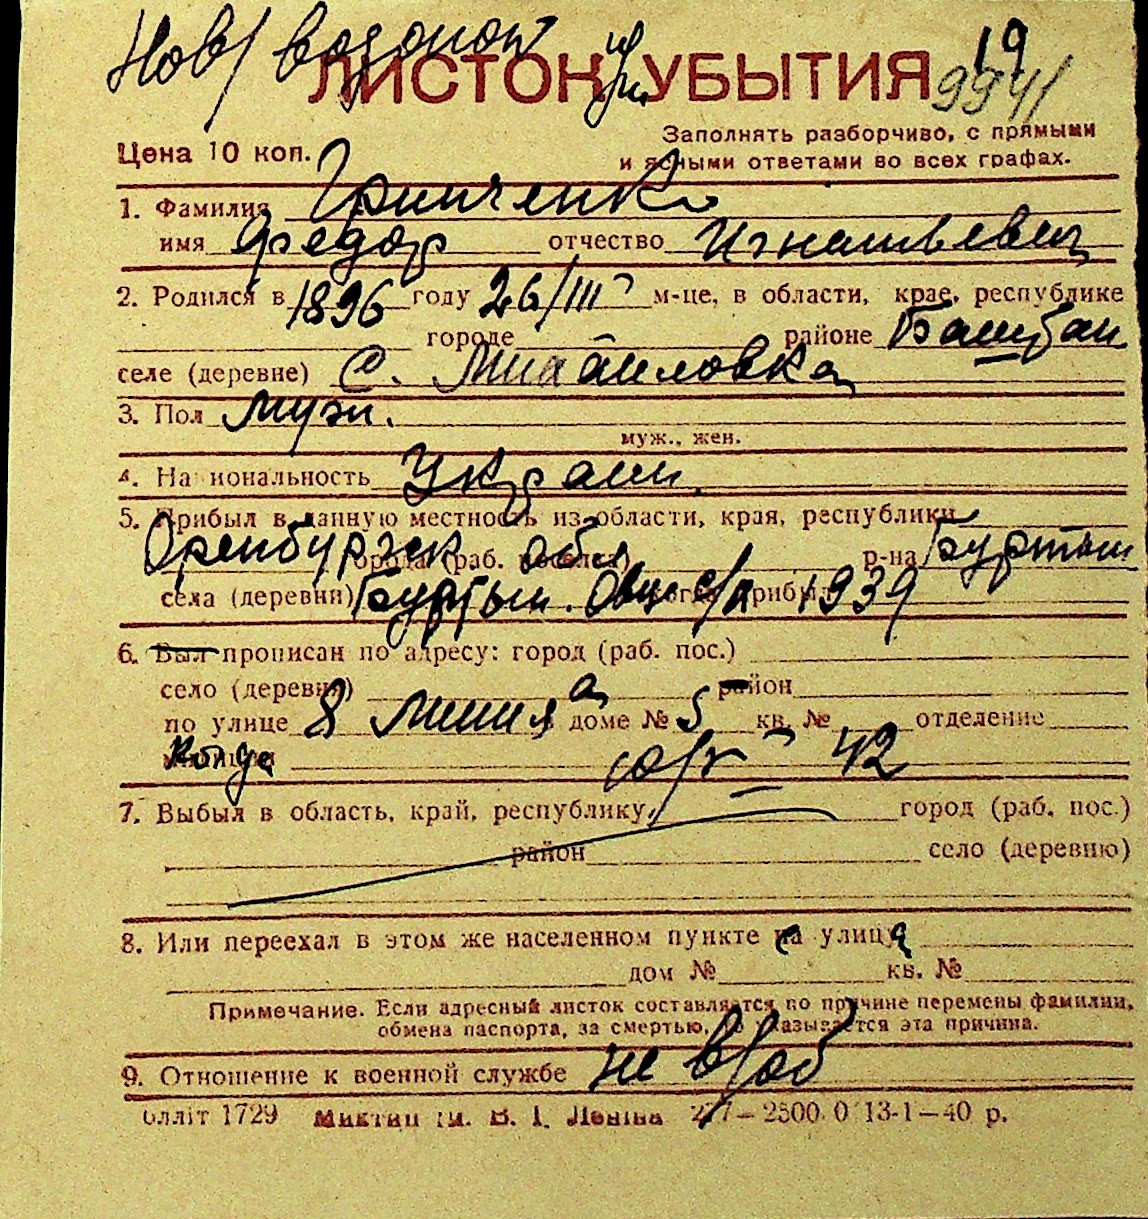 Нов/ водопой 19
ЛИСТОК УБЫТИЯ 9941
Заполнять разборчиво, с прямыми
Цена 10 коп. и ясными ответами во всех графах.
1. Фамилия Гринченко
имя Федор отчество Игнатьевич
2. Родился в 1896 году 26/III м-це, в области, крае, республике
городе районе Башбан
селе (деревне) с. Михайловка
3. Пол муж.
муж., жен.
4. На иональность Украин.
5. Прибыл в данную местность из области, края, республики
Оренбургск обл города (раб. поселка) р-на Буртын
села (деревни) Буртын. Овц с/х когда прибыл 1939
6. Был прописан по адресу: город (раб. пос.)
село (деревня) район
по улице 8 Линия доме № 5 кв. № отделение
42
7. Выбыл в область, край, республику, город (раб. пос.)
район село (деревню)
8. Или переехал в этом же населенном пункте на улицу
дом № кв. №
Примечание. Если адресный листок составляется по причине перемены фамилии,
обмена паспорта, за смертью, то указывается эта причина.
9. Отношение к военной службе не в/об
Оллiт 1729 Миктип iм. В. I. Ленiна 277—2500.0 13-1—40 р.